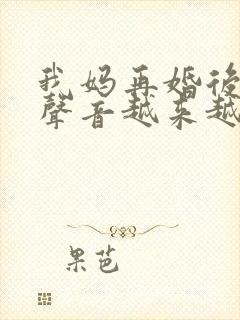 我妈再婚後
聲音越来越
果芭